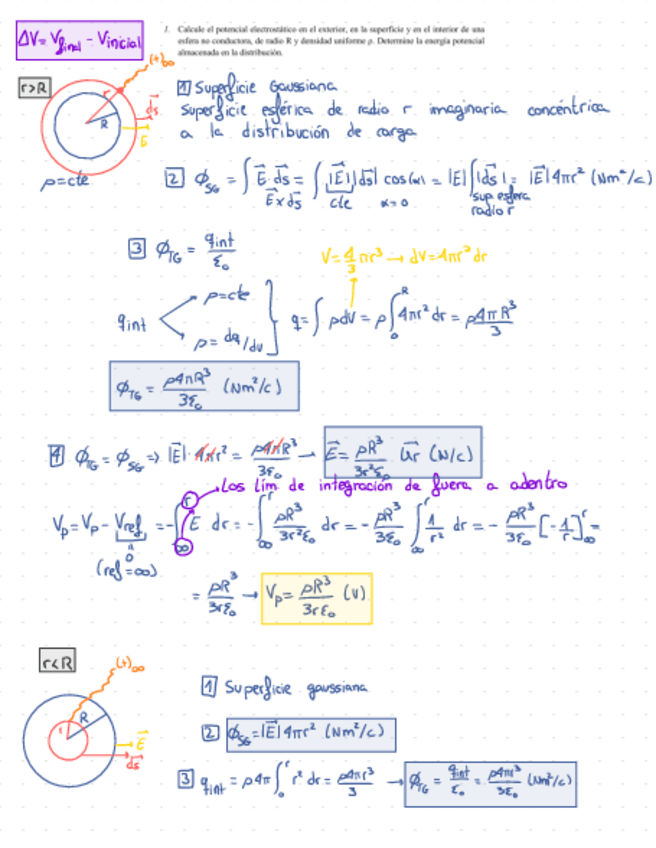 ΔV = V_final - V_inicial
1. Calcule el potencial electrostático en el exterior, en la superficie y en el interior de una
esfera no conductora, de radio R y densidad uniforme ρ. Determine la energía potencial
almacenada en la distribución.
r>R
(+)∞
r
R
ds
E
ρ=cte
1 Superficie Gaussiana
Superficie esférica de radio r imaginaria concéntrica
a la distribución de carga
2 ϕ_SG = ∫ E · ds = ∫ |E| |ds| cos(α) = |E| ∫ |ds| = |E| 4πr² (Nm²/c)
E x ds
cte
α=0
sup esfera
radio r
3 ϕ_TG = qint/ε₀
V = 4/3 πr³ → dV = 4πr² dr
qint
ρ=cte
ρ = dq/dv
q = ∫ ρdV = ρ ∫₀ᴿ 4πr² dr = ρ4πR³/3
ϕ_TG = ρ4πR³/3ε₀ (Nm²/c)
4 ϕ_TG = ϕ_SG => |E| · 4πr² = ρ4πR³/3ε₀ → E = ρR³/3r²ε₀ ur (N/c)
Los lím de integración de fuera a adentro
Vp = Vp - Vref = -∫_∞^r E dr = -∫_∞^r ρR³/3r²ε₀ dr = - ρR³/3ε₀ ∫_∞^r 1/r² dr = - ρR³/3ε₀ [-1/r]_∞^r =
0
(ref = ∞)
= ρR³/3rε₀ → Vp = ρR³/3rε₀ (V)
r<R
(+)∞
r
R
E
ds
1 Superficie gaussiana
2 ϕ_SG = |E| 4πr² (Nm²/c)
3 qint = ρ4π ∫₀ʳ r² dr = ρ4πr³/3 → ϕ_TG = qint/ε₀ = ρ4πr³/3ε₀ (Nm²/c)